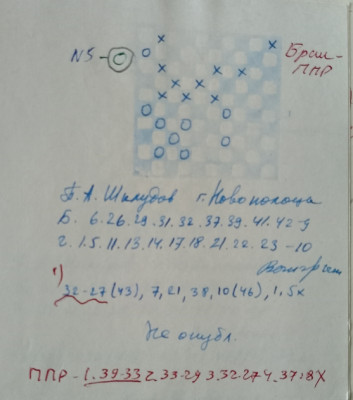 N5
Браш-
ППР
П. А. Шклудов г. Новополоцк
Б. 6. 26. 29. 31. 32. 37. 39. 41. 42 - 9
Ч. 1. 5. 11. 13. 14. 17. 18. 21. 22. 23 - 10
Выигрыш
1) 32-27 (43), 7, 21, 38, 10 (46), 1, 5x
Не опубл.
ППР - 1. 39-33 2. 33-29 3. 32-27 4. 37:8X